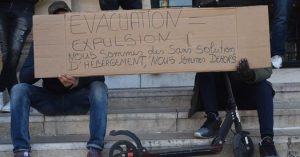 EVACUATION =
EXPULSION !
NOUS SOMMES des SANS SOLUTION
D'HÉBERGEMENT, NOUS SOMMES DEHORS